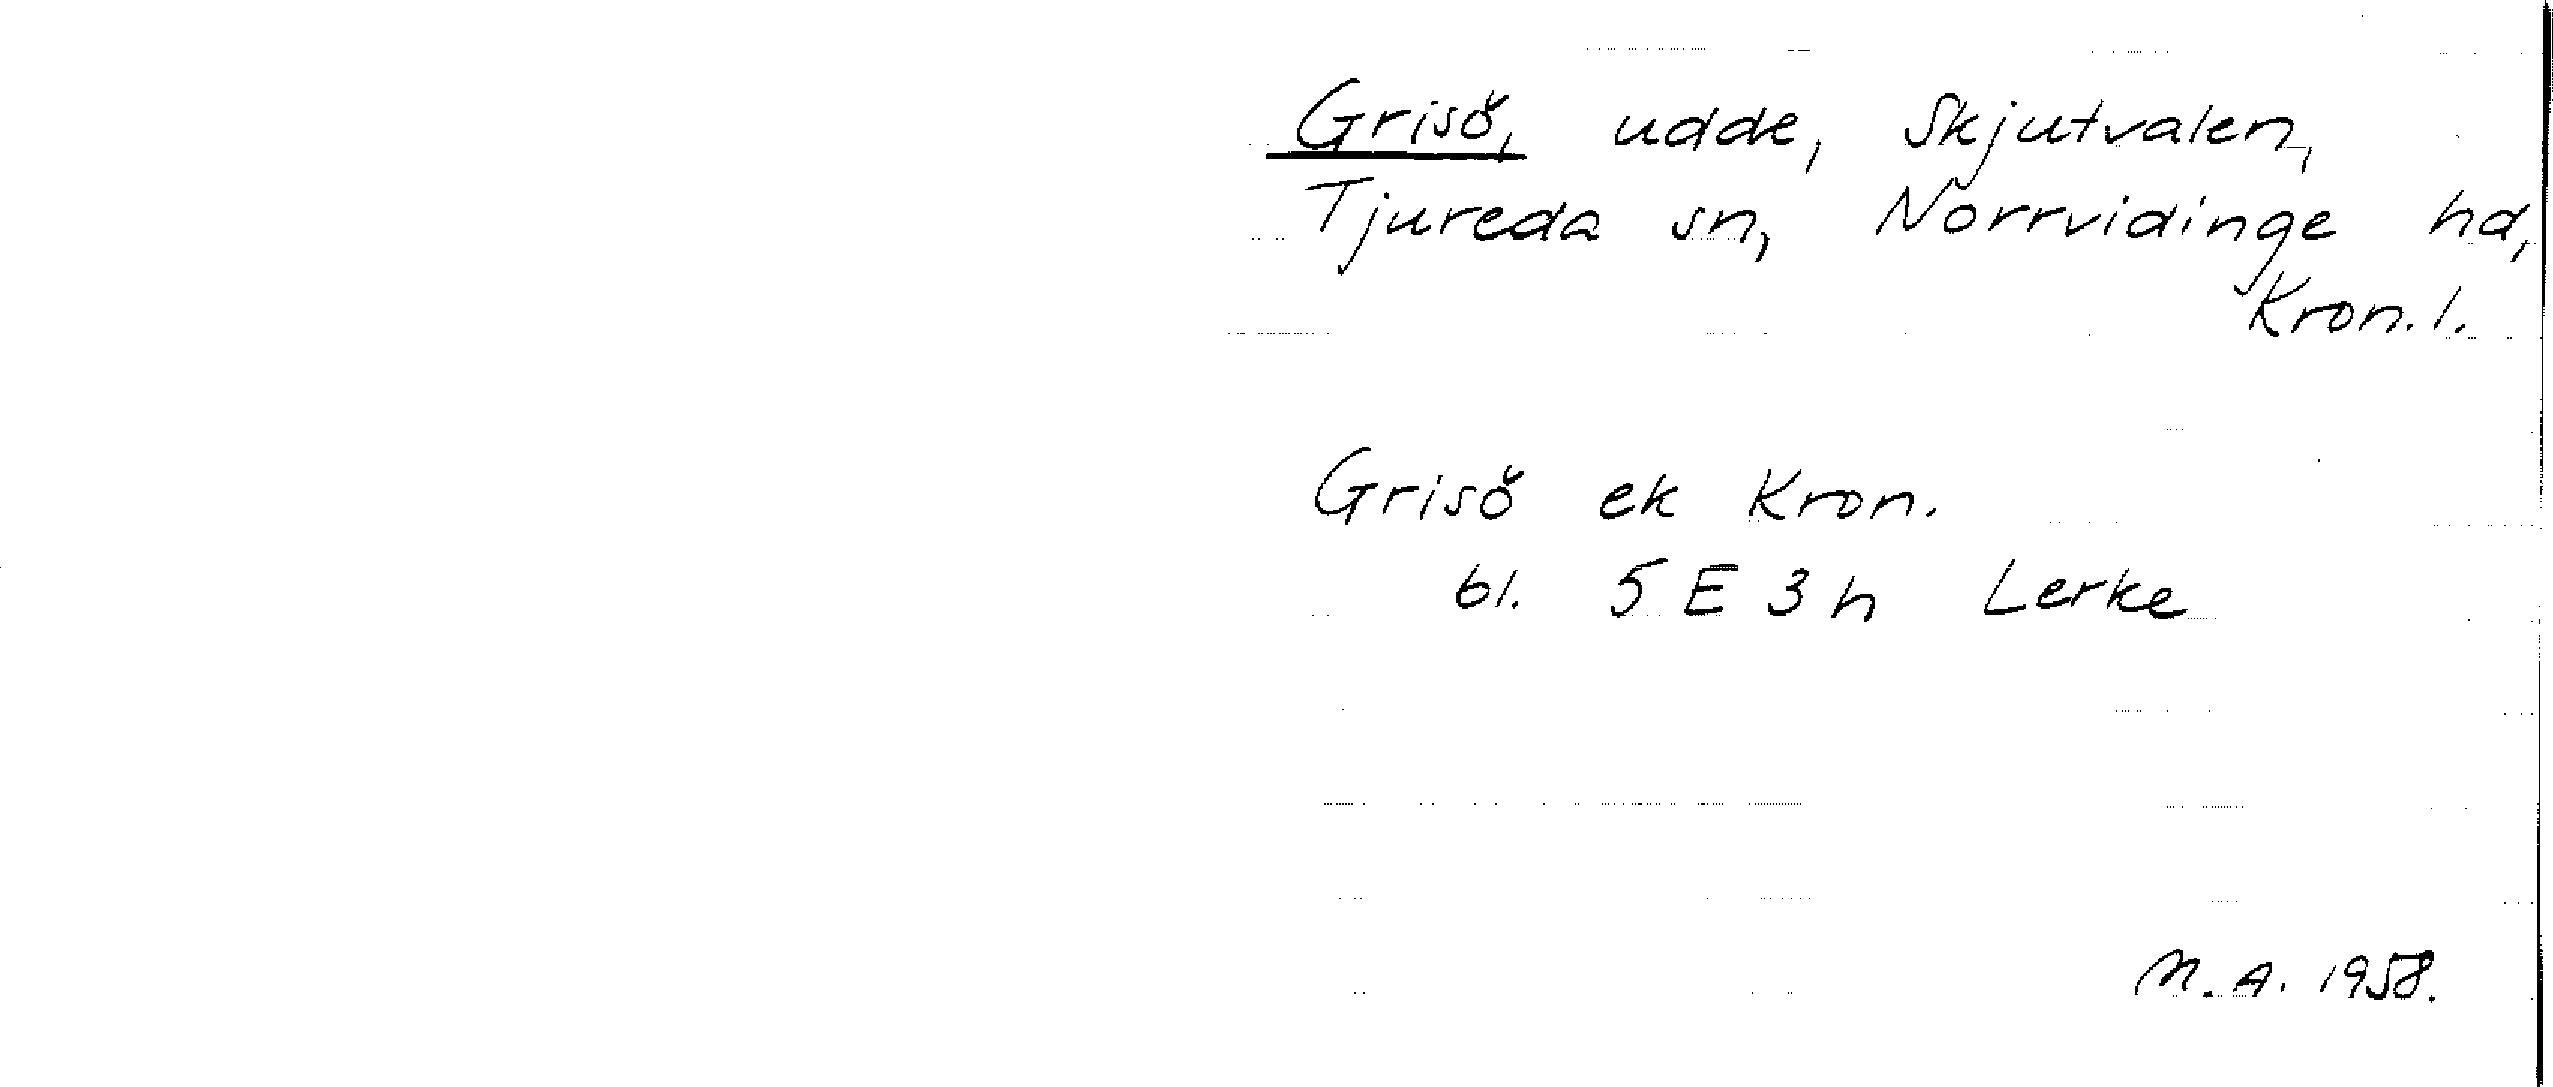 Grisö, udde, Skjutvalen,
Tjureda sn, Norrvidinge hd,
Kron. l.
Grisö ek Kron.
bl. 5 E 3 h Lerke
M. A. 1958.